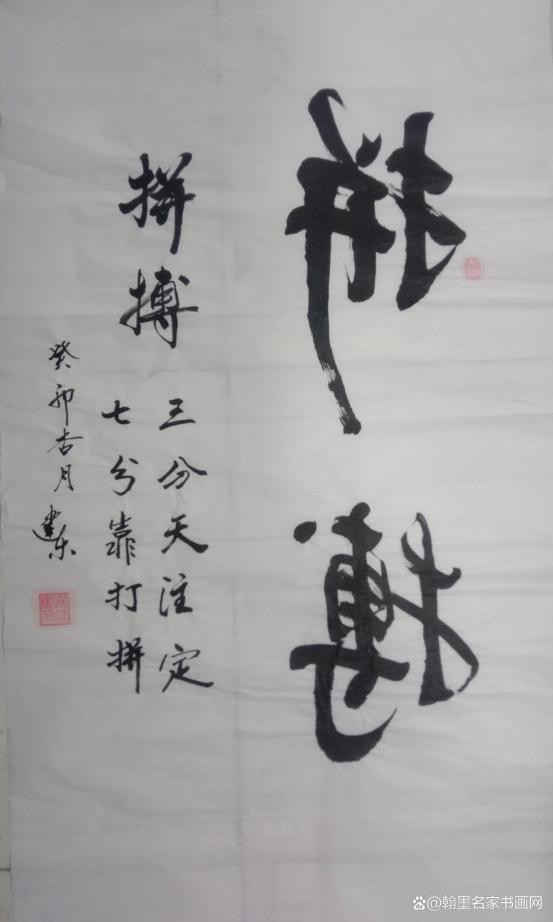 拼搏
拼搏
三分天注定
七分靠打拼
癸卯杏月建东
@翰墨名家书画网